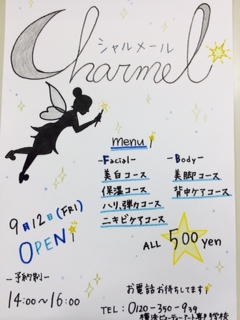 シャルメール
Charmel
menu
-Facial-
美白コース
保湿コース
ハリ、弾力コース
ニキビケアコース
-Body-
美脚コース
背中ケアコース
9月12日(FRI)
OPEN!
ALL 500 yen
-予約制-
14:00~16:00
お電話お待ちしてます!
TEL: 0120-350-939
横浜ビューティーアート専門学校